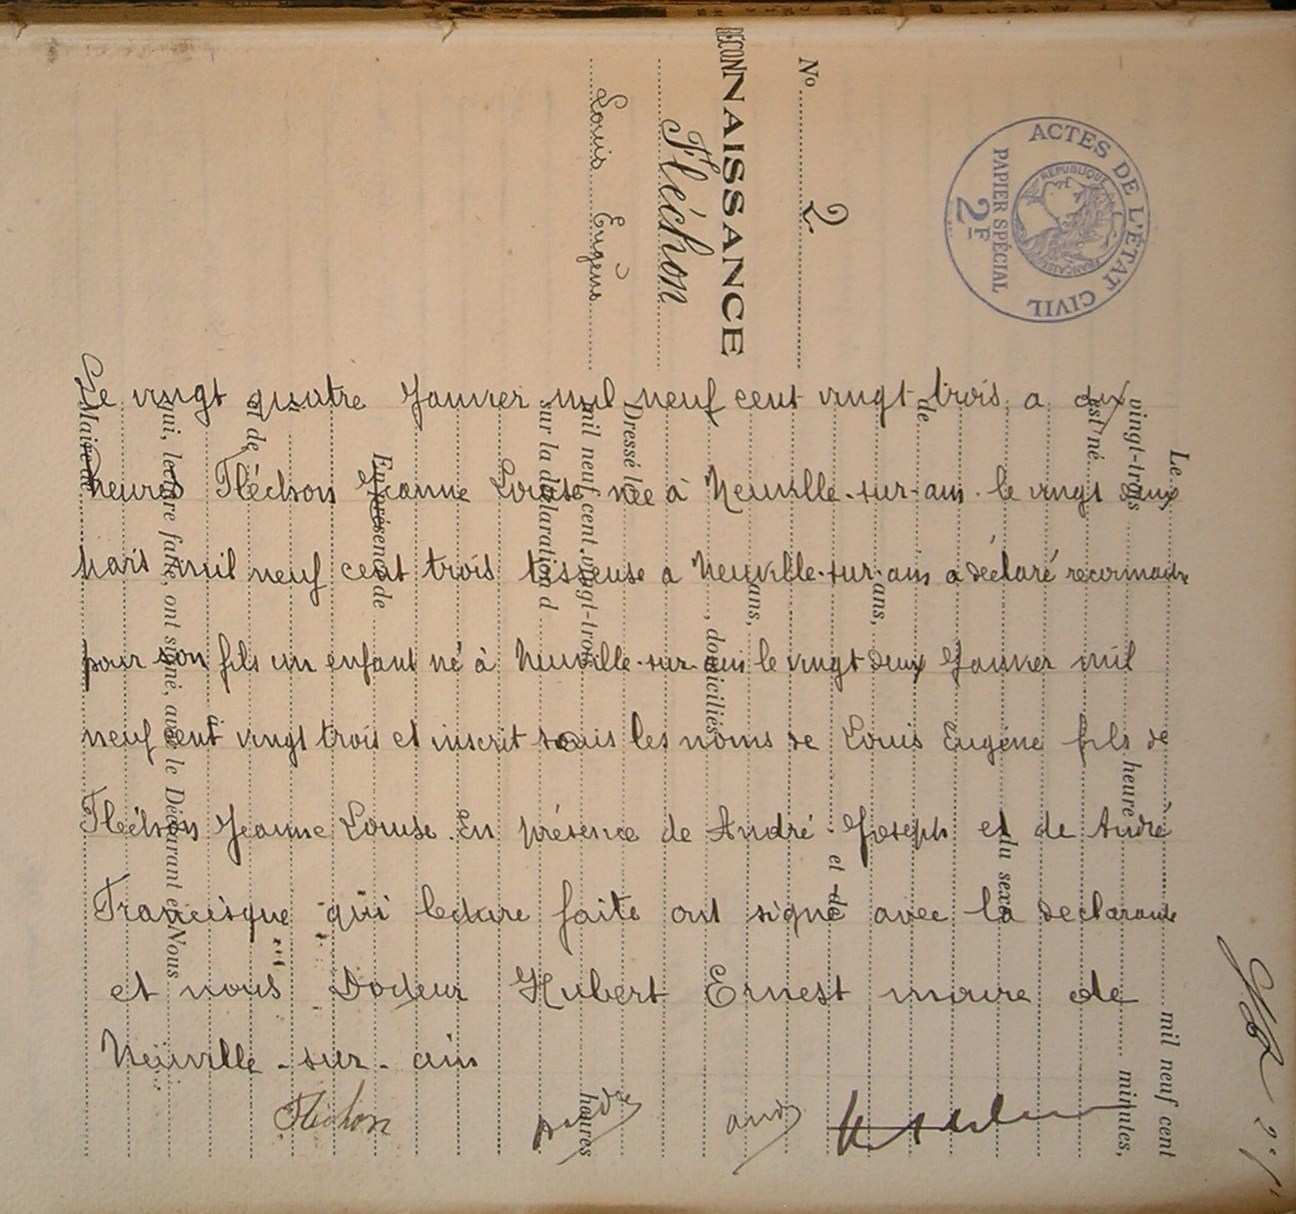 N° 2
RECONNAISSANCE
Fléchon
Louis Eugène
ACTES DE L'ÉTAT CIVIL
RÉPUBLIQUE FRANÇAISE
PAPIER SPÉCIAL
2F
Le vingt quatre Janvier mil neuf cent vingt trois a dix
heures Fléchon Jeanne Louise née à Neuville-sur-ain le vingt deux
mars mil neuf cent trois tisseuse a Neuville-sur-ain a déclaré reconnaitre
pour son fils un enfant né à Neuville-sur-ain le vingt deux Janvier mil
neuf cent vingt trois et inscrit sous les noms de Louis Eugène fils de
Fléchon Jeanne Louise. En présence de André Joseph et de André
Francisque qui lecture faite ont signé avec la declarante
et nous Docteur Hubert Ernest maire de
Neuville-sur-ain
Fléchon
André
Le mil neuf cent
vingt-trois heure minutes,
est né
du sexe
de
ans,
et de
ans,
, domiciliés
Dressé le
mil neuf cent vingt-trois heures
sur la déclaration d
En présence de
et de
qui, lecture faite, ont signé, avec le Déclarant et Nous
Maire de